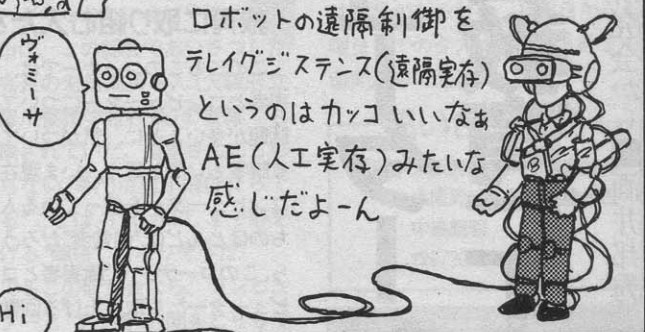 ヴォミーサ
ロボットの遠隔制御を
テレイグジステンス(遠隔実存)
というのはカッコいいなぁ
AE(人工実存)みたいな
感じだよーん
Hi